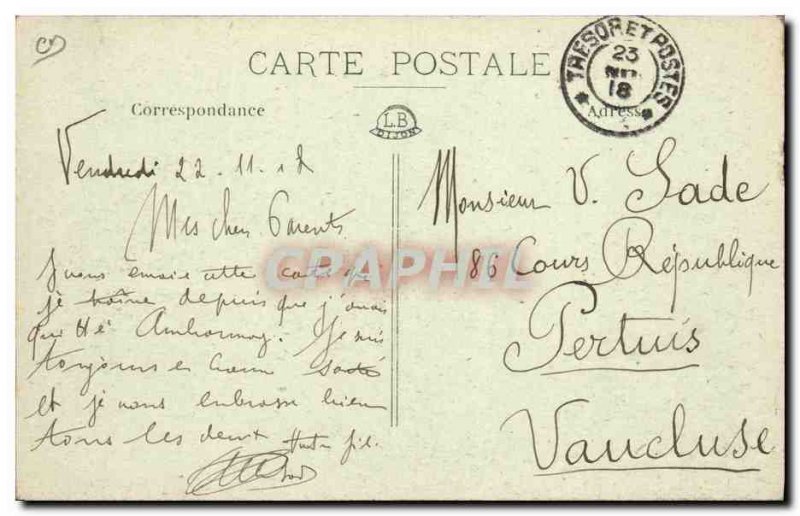 CARTE POSTALE
TRESOR ET POSTES
23
18
Correspondance
Adresse
L.B
DIJON
Vendredi 22.11.18
Mes chers Parents
Je vous envoie cette carte que
je traîne depuis que j'avais
quitté Je suis
toujours en bonne santé
et je vous embrasse bien
tous les deux Votre fils
Monsieur V. Sade
86 Cours République
Pertuis
Vaucluse
CPAPHIL